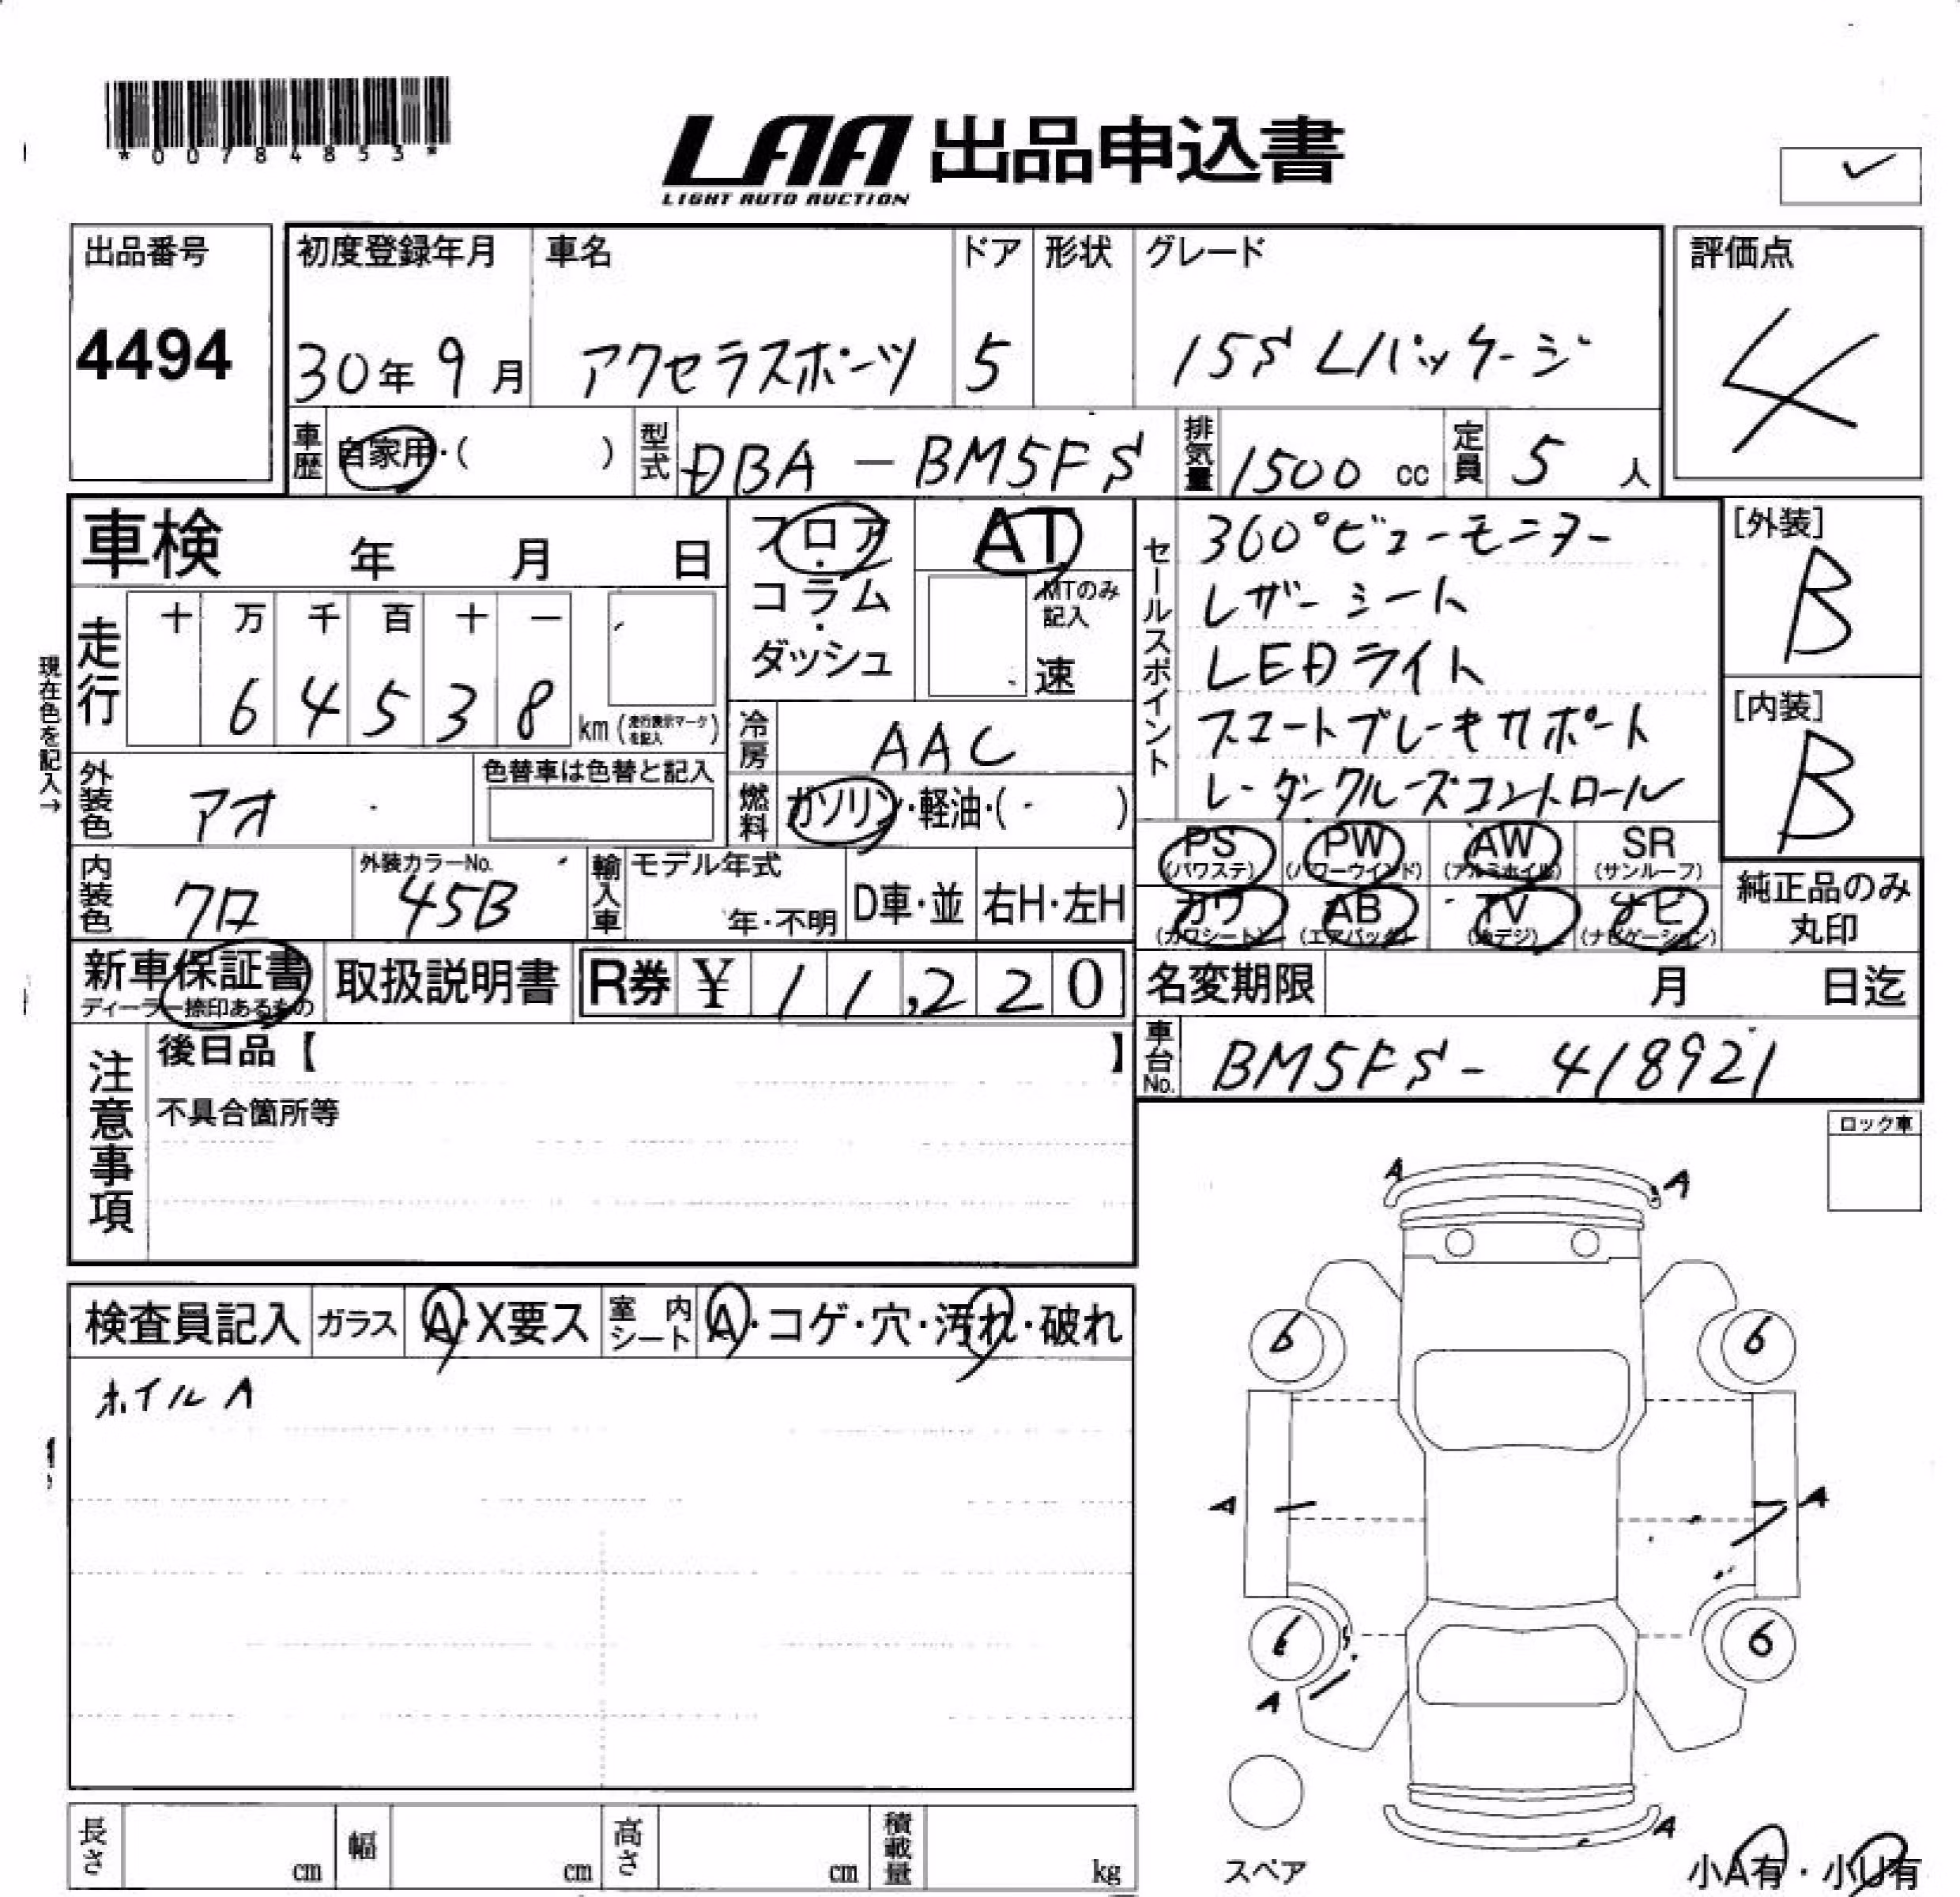 *00784853*
LAA 出品申込書
LIGHT AUTO AUCTION
✓
出品番号
4494
初度登録年月
30年 9月
車名
アクセラスポーツ
ドア
5
形状
グレード
15S Lパッケージ
評価点
4
車歴 自家用・( )
型式 DBA - BM5FS
排気量 1500 cc
定員 5 人
車検 年 月 日
フロア・
コラム・
ダッシュ
AT
MTのみ
記入
速
走行
十 万 千 百 十 一
6 4 5 3 8 km (走行表示マークを記入)
現在色を記入→
外装色 アオ
色替車は色替と記入
冷房 AAC
燃料 ガソリン・軽油・( )
セールスポイント
360°ビューモニター
レザーシート
LEDライト
スマートブレーキサポート
レーダークルーズコントロール
[外装]
B
[内装]
B
PS (パワステ)
PW (パワーウインド)
AW (アルミホイル)
SR (サンルーフ)
カワ (カワシート)
AB (エアバッグ)
TV (地デジ)
ナビ (ナビゲーション)
純正品のみ
丸印
内装色 クロ
外装カラーNo.
45B
輸入車 モデル年式
年・不明
D車・並
右H・左H
新車保証書
ディーラー捺印あるもの
取扱説明書
R券 ¥ 11,220
名変期限 月 日迄
車台No. BM5FS- 418921
注意事項
後日品【 】
不具合箇所等
ロック車
検査員記入 ガラス A・X要ス 室内シート A・コゲ・穴・汚れ・破れ
ホイルA
A A
6 6
A A
6 6
A
A
スペア
小A有・小U有
長さ cm 幅 cm 高さ cm 積載量 kg